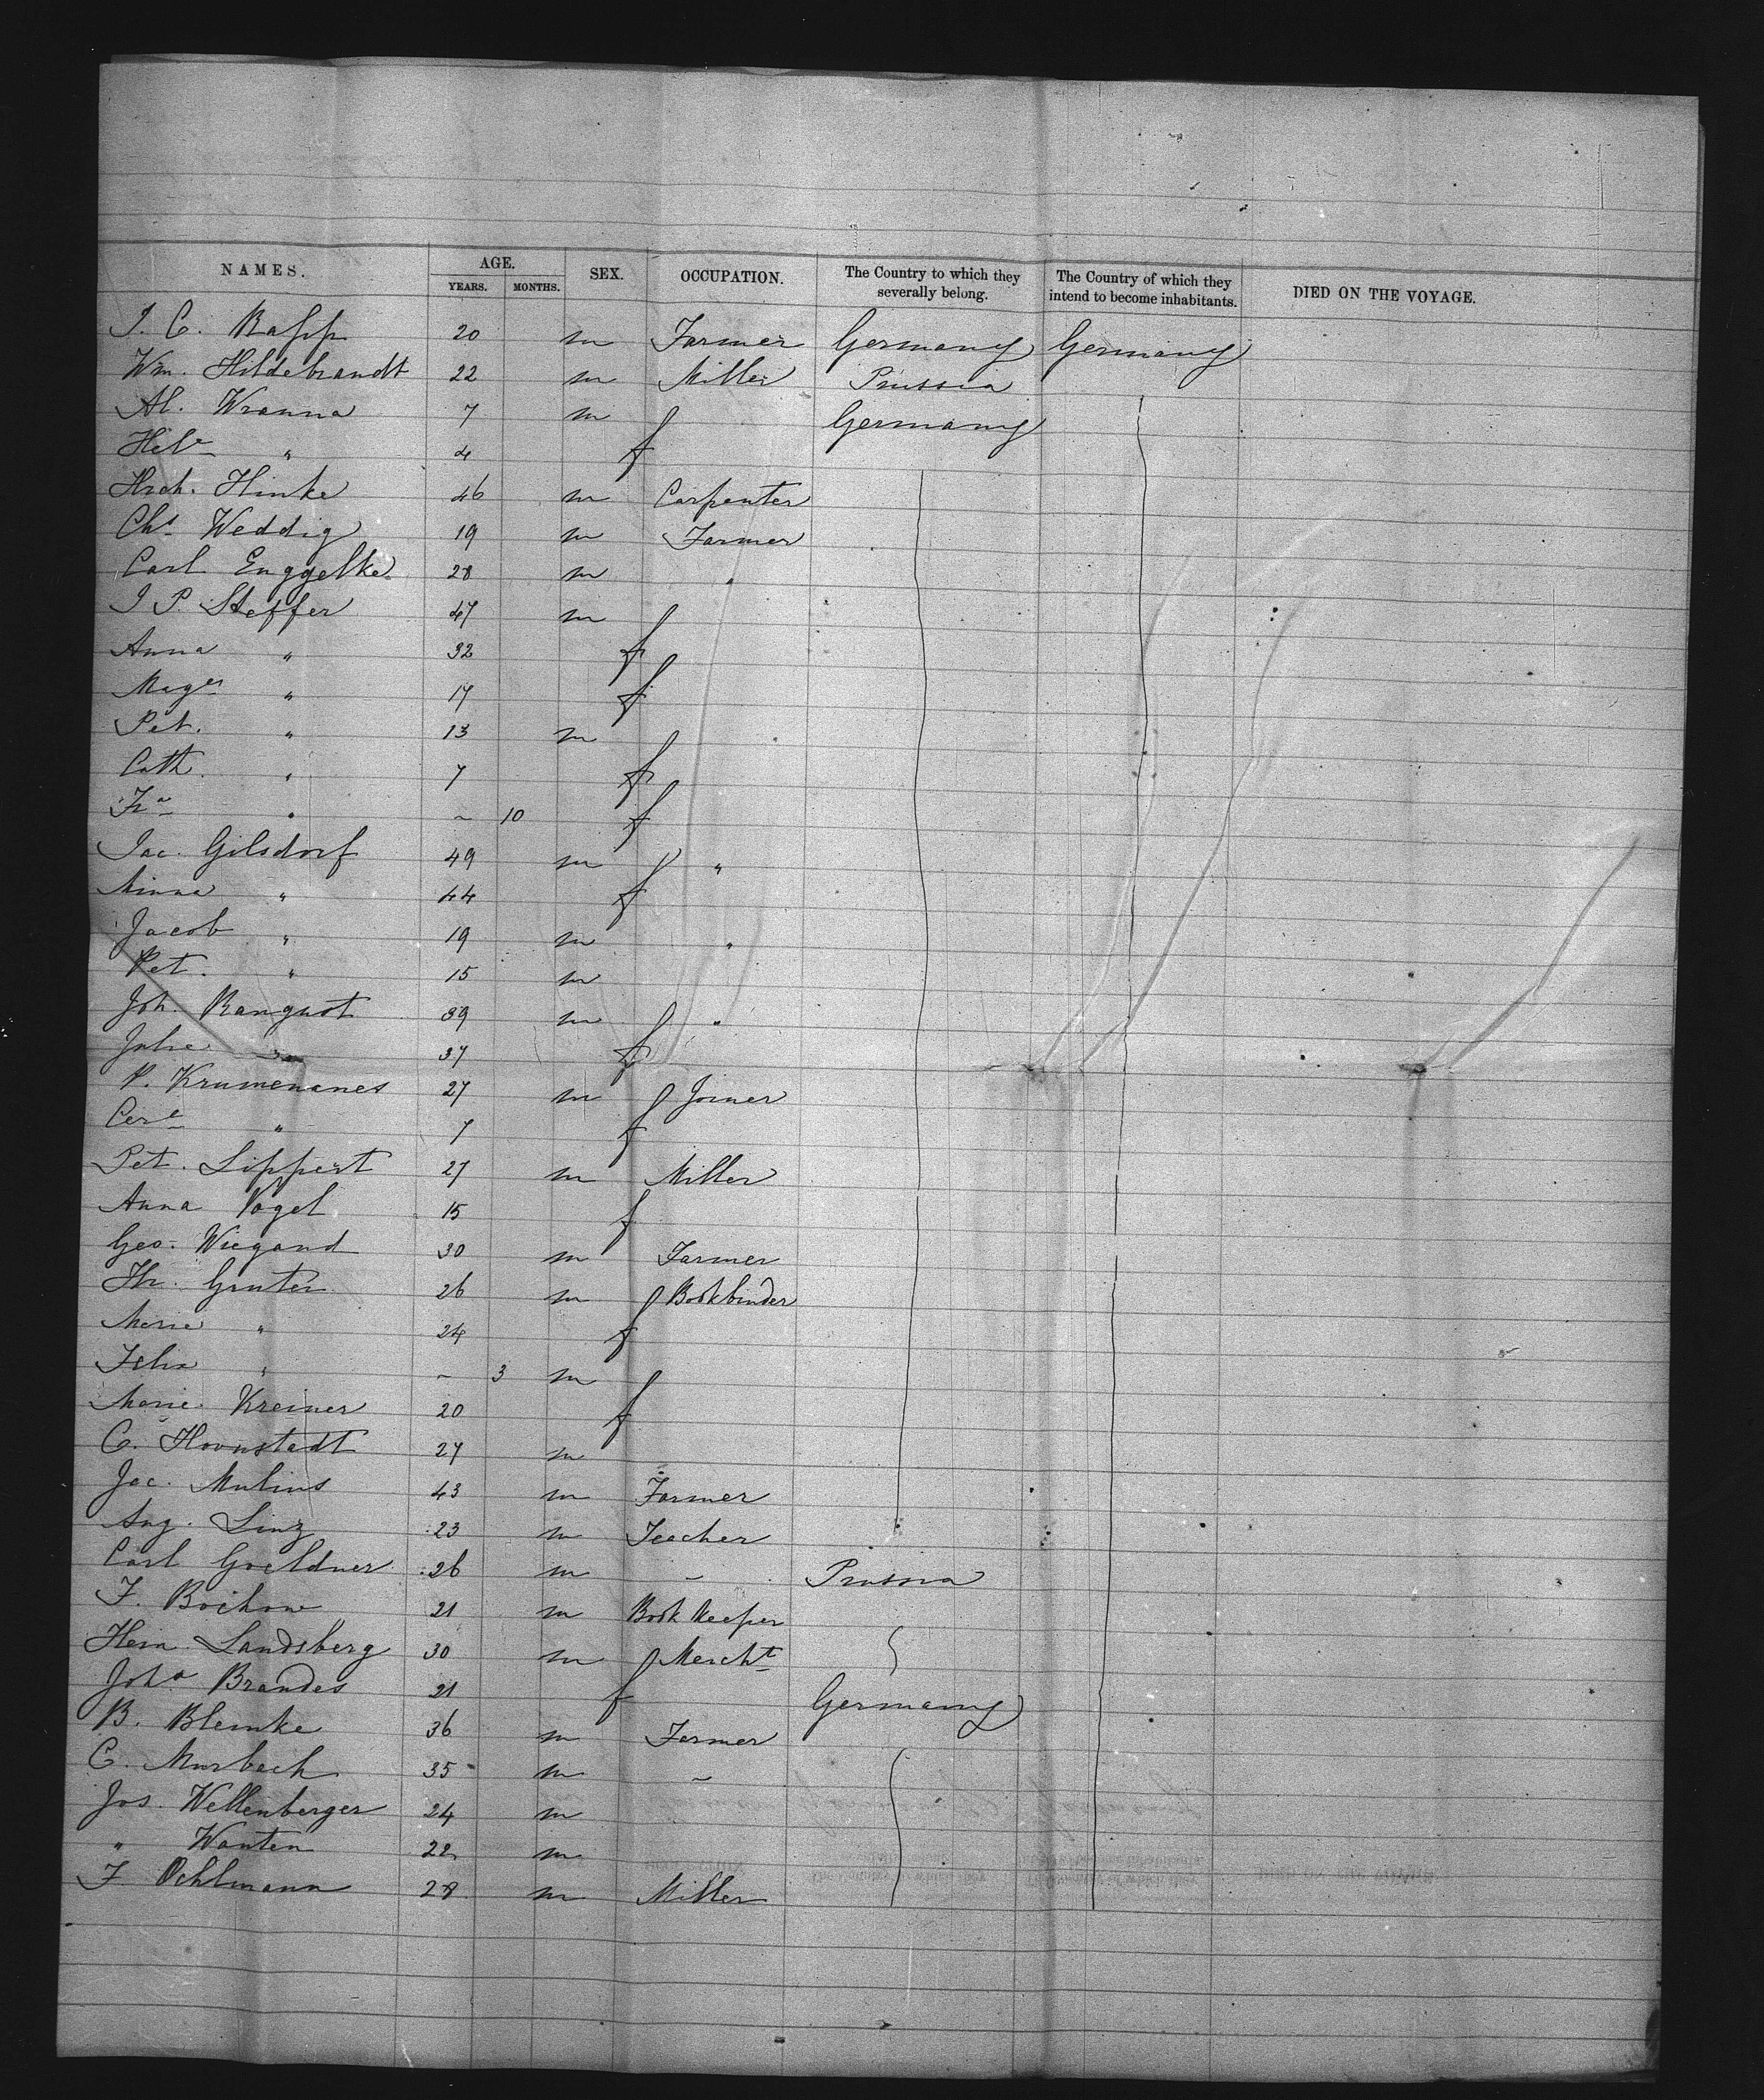 NAMES. AGE. SEX. OCCUPATION. The Country to which they severally belong. The Country of which they intend to become inhabitants. DIED ON THE VOYAGE.
YEARS. MONTHS.
J. C. Rapp 20 m Farmer Germany Germany
Wm. Hildebrandt 22 m Miller Prussia
Al. Wranna 7 m Germany
Hele " 4 f
Hrch. Hinke 46 m Carpenter
Chs Weddig 19 m Farmer
Carl Enggelke 28 m "
J P. Steffer 47 m
Anna " 32 f
Magr " 17 f
Pet. " 13 m
Cath. " 7 f
Fra " ~ 10 f
Jac. Gilsdorf 49 m "
Minna " 44 f
Jacob " 19 m "
Pet. " 15 m
Joh. Ranquot 39 m "
Julie " 37 f
P. Krumenanes 27 m Joiner
" 7 f
Pet. Lippert 27 m Miller
Anna Vogel 15 f
Geo. Wiegand 30 m Farmer
Gruter 26 m Bookbinder
Marie " 24 f
" ~ 3 m
Marie Kreiner 20 f
C. Hovnstadt 27 m
Jac. Mulius 43 m Farmer
Aug. Linz 23 m Teacher
Carl Goeldner 26 m ~ Prussia
F. Bochow 21 m Book Keeper
Hein Landsberg 30 m Mercht
Joha Brandes 21 f Germany
B. Blemke 36 m Farmer
C. Murbach 35 m ~
Jos. Wellenberger 24 m
" Wanten 22 m
F Oehlmann 28 m Miller